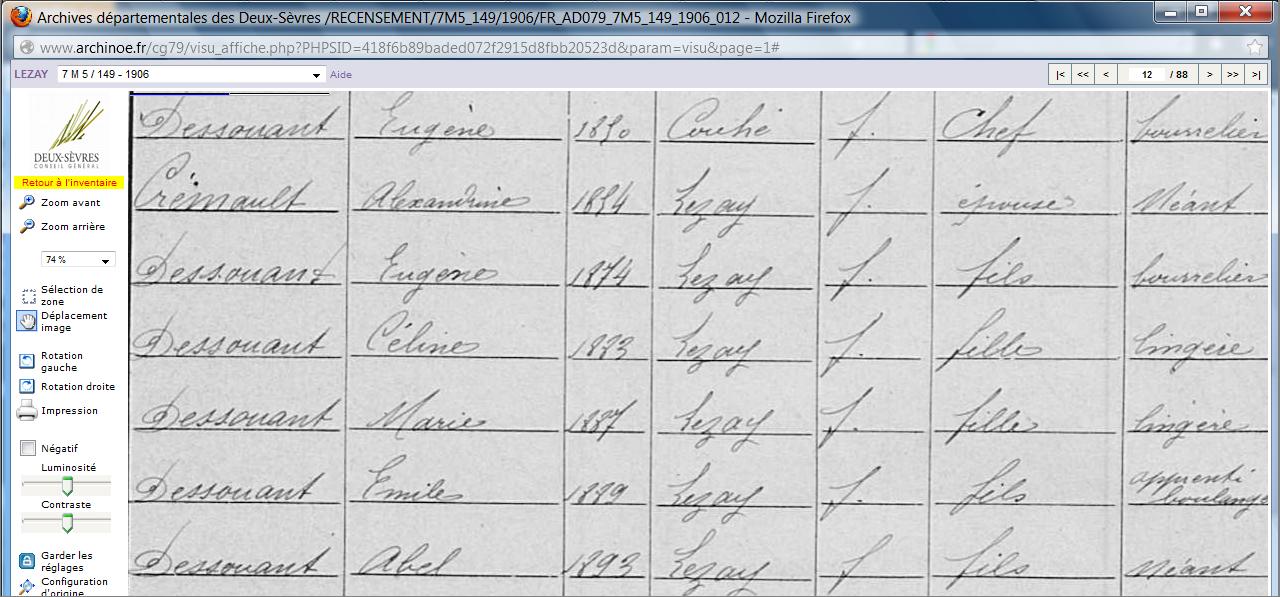 Archives départementales des Deux-Sèvres /RECENSEMENT/7M5_149/1906/FR_AD079_7M5_149_1906_012 - Mozilla Firefox
www.archinoe.fr/cg79/visu_affiche.php?PHPSID=418f6b89baded072f2915d8fbb20523d&param=visu&page=1#
LEZAY 7 M 5 / 149 - 1906 Aide |< << < 12 / 88 > >> >|
DEUX-SÈVRES
CONSEIL GÉNÉRAL
Retour à l'inventaire
Zoom avant
Zoom arrière
74 %
Sélection de
zone
Déplacement
image
Rotation
gauche
Rotation droite
Impression
Négatif
Luminosité
Contraste
Garder les
réglages
Configuration
d'origine
Dessouant Eugène 1850 Couhé f. Chef bourrelier
Crémault Alexandrine 1854 Lezay f. épouse Néant
Dessouant Eugène 1874 Lezay f. fils bourrelier
Dessouant Céline 1883 Lezay f. fille lingère
Dessouant Marie 1887 Lezay f. fille lingère
Dessouant Emile 1889 Lezay f. fils apprenti
boulange
Dessouant Abel 1893 Lezay f fils Néant